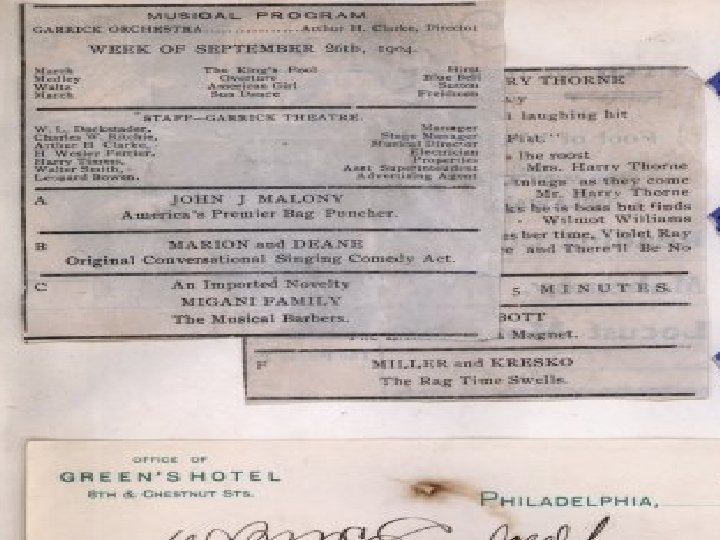 MUSICAL PROGRAM
GARRICK ORCHESTRA................Arthur H. Clarke, Director
WEEK OF SEPTEMBER 26th, 1904.
March The King's Fool Hirst
Medley Overture Blue Bell
Waltz American Girl Sutton
March Sun Dance Freidman
STAFF—GARRICK THEATRE.
W. L. Dockstader, Manager
Charles W. Ritchie, Stage Manager
Arthur H. Clarke, Musical Director
H. Wesler Ferrier, Electrician
Harry Thress, Properties
Walter Smith, Asst Superintendent
Leonard Bowen, Advertising Agent
A JOHN J MALONY
America's Premier Bag Puncher.
B MARION and DEANE
Original Conversational Singing Comedy Act.
C An Imported Novelty
MIGANI FAMILY
The Musical Barbers.
RY THORNE
laughing hit
Flat."
the roost
Mrs. Harry Thorne
things as they come
Mr. Harry Thorne
ks he is boss but finds
Wilmot Williams
her time, Violet Ray
and There'll Be No
5 MINUTES.
BOTT
Magnet.
F MILLER and KRESKO
The Rag Time Swells.
OFFICE OF
GREEN'S HOTEL
8TH & CHESTNUT STS.
PHILADELPHIA,